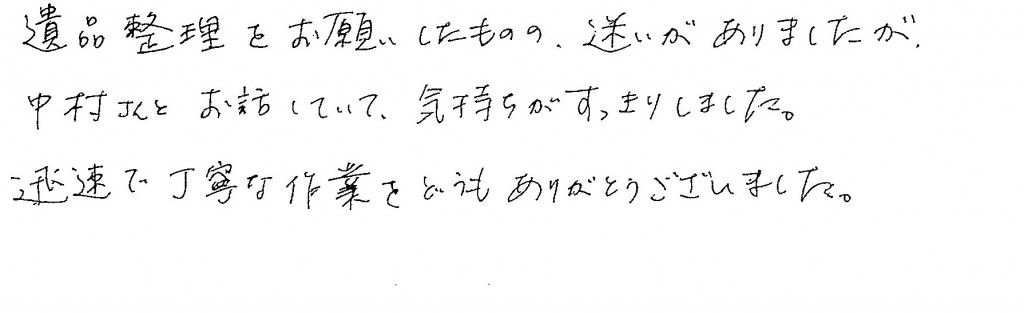 遺品整理をお願いしたものの、迷いがありましたが、
中村さんとお話していて、気持ちがすっきりしました。
迅速で丁寧な作業をどうもありがとうございました。